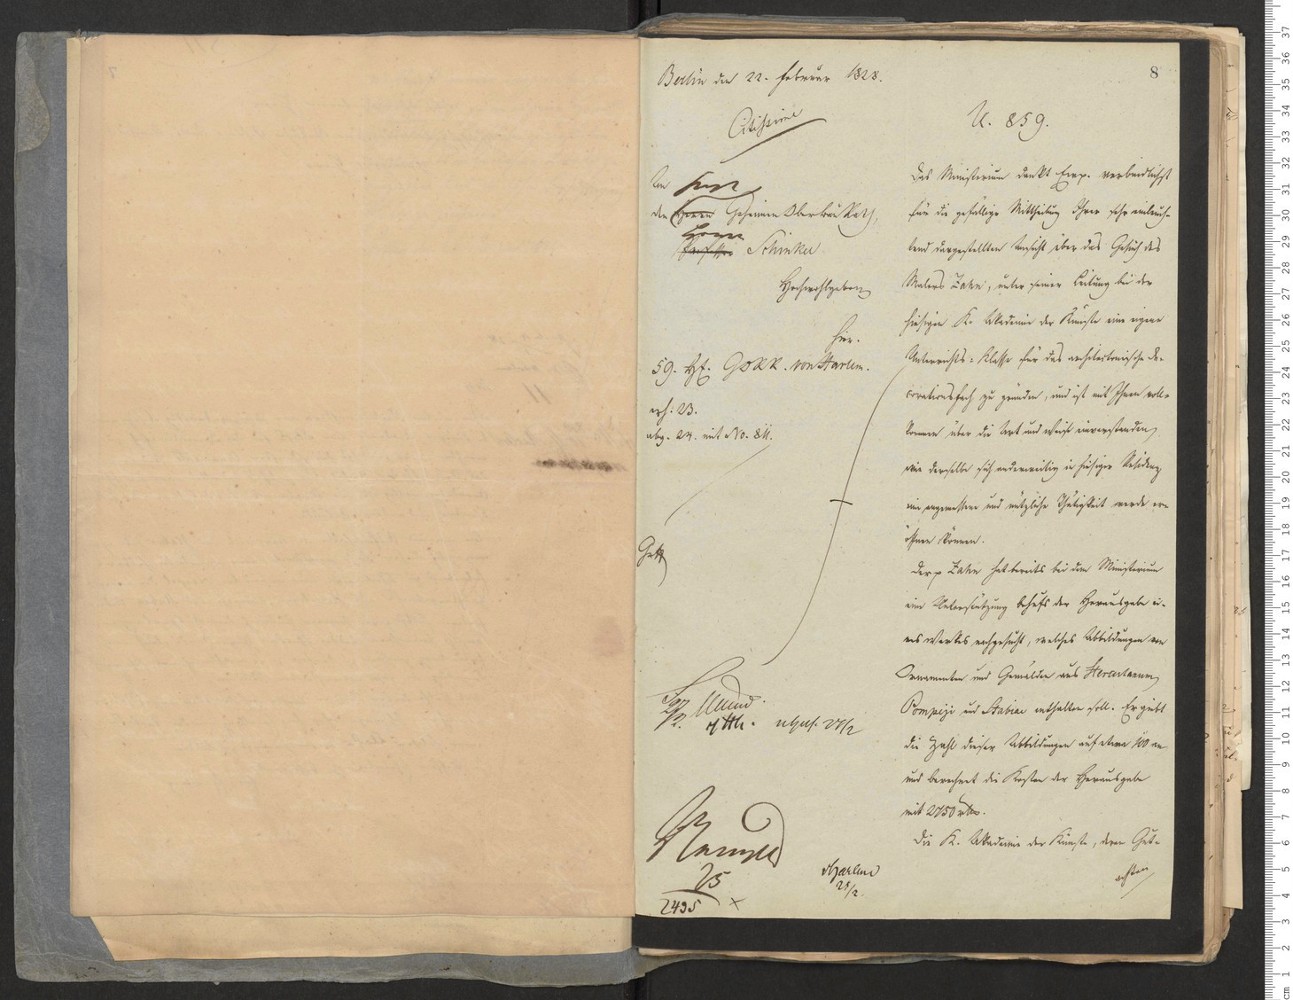 8
Berlin den 22. Februar 1828.
U. 859.
An
den Herrn Geheimen Oberbau Rath,
Herrn
Schinkel
Hochwohlgeboren
hier.
59. Hf. GORR. von Harlem.
exp. 23.
abg. 24. mit No. 811.
ult. 27/2
Kamptz
25
2495
Harlem
25/2.
Das Ministerium dankt Ew. p. verbindlichst
für die gefällige Mittheilung Ihrer sehr einleuch-
tend dargestellten Ansicht über das Gesuch des
Malers Zahn, unter seiner Leitung bei der
hiesigen K. Akademie der Künste eine eigene
Unterrichts-Klasse für das architectonische De-
corationsfach zu gründen, und ist mit Ihnen voll-
kommen über die Art und Weise einverstanden,
wie derselbe sich anderweitig in hiesiger Residenz
eine angemessene und nützliche Thätigkeit werde er-
öffnen können.
Der p Zahn hat bereits bei dem Ministerium
eine Unterstützung behufs der Herausgabe ei-
nes Werkes nachgesucht, welches Abbildungen von
Ornamenten und Gemälden aus Herculanum,
Pompeji und Stabiae enthalten soll. Er giebt
die Zahl dieser Abbildungen auf etwa 100 an
und berechnet die Kosten der Herausgabe
mit 2750 rtlr.
Die K. Akademie der Künste, deren Gut-
achten